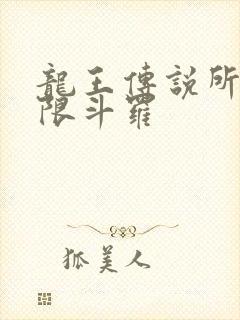 龍王傳説所
限斗羅
狐美人